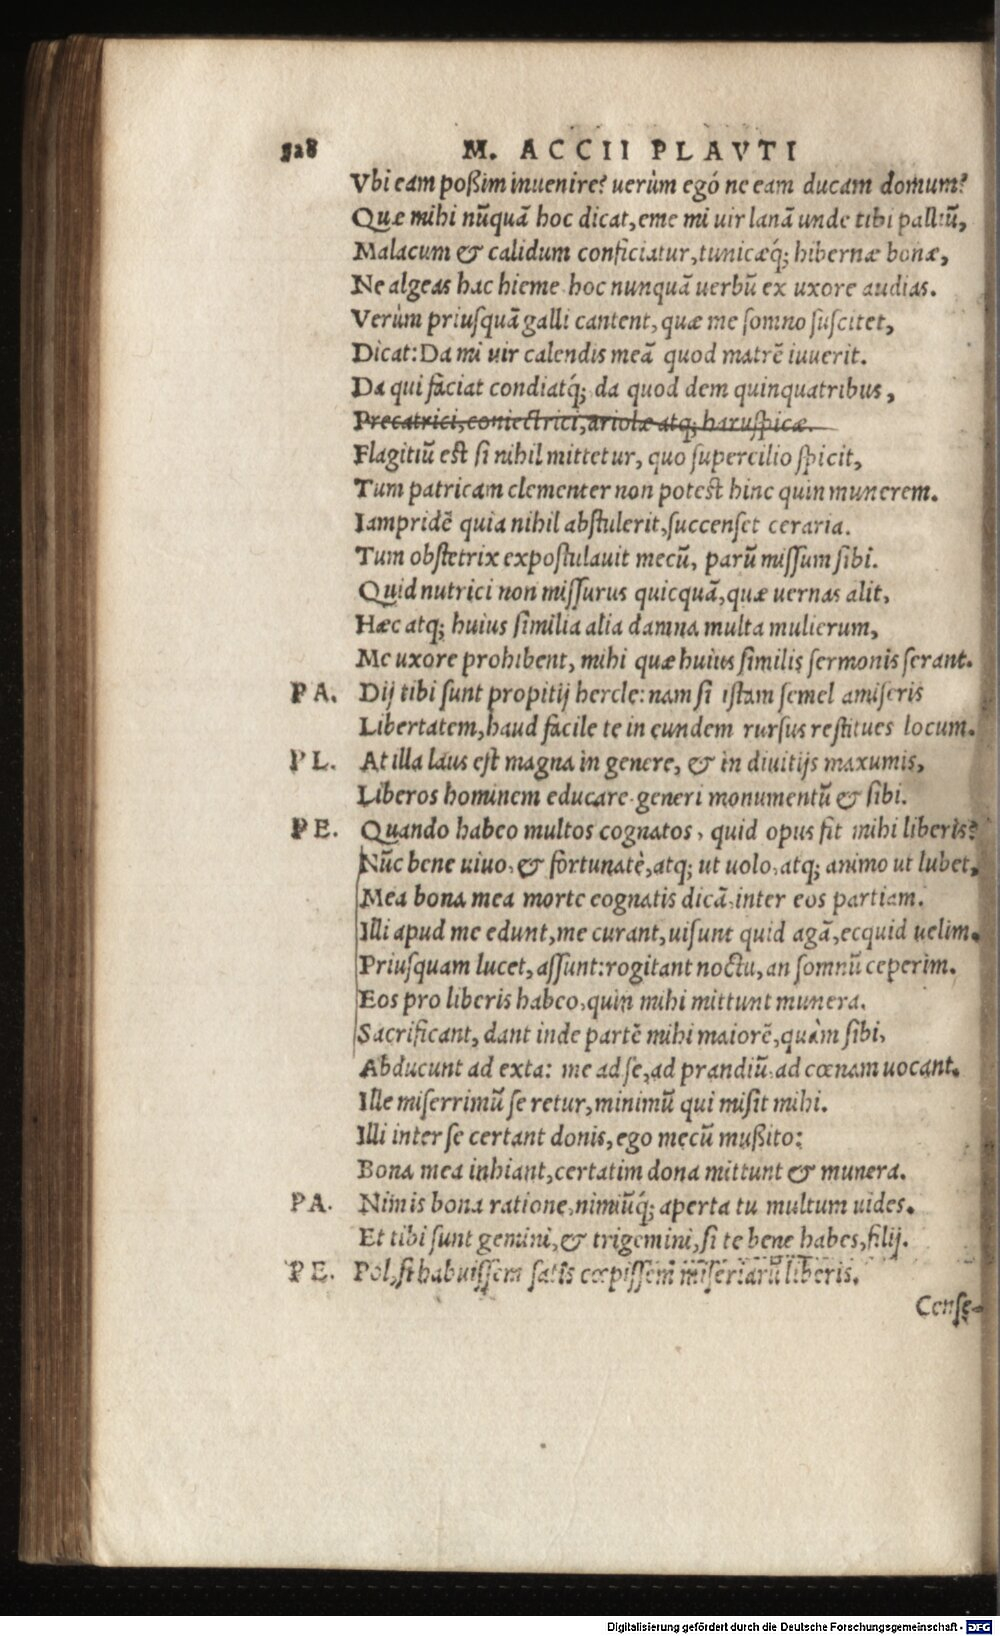 528 M. ACCII PLAVTI
Vbi eam poßim inuenire? uerùm egó ne eam ducam domum?
Quæ mihi nũquã hoc dicat, eme mi uir lanã unde tibi palliũ,
Malacum & calidum conficiatur, tunicæq́; hibernæ bonæ,
Ne algeas hac hieme hoc nunquã uerbũ ex uxore audias.
Verùm priusquã galli cantent, quæ me somno suscitet,
Dicat: Da mi uir calendis meã quod matrẽ iuuerit.
Da qui faciat condiatq́; da quod dem quinquatribus,
Precatrici, coniectrici, ariolæ atq; haruspicæ.
Flagitiũ est si nihil mittetur, quo supercilio spicit,
Tum patricam clementer non potest hinc quin munerem.
Iampridẽ quia nihil abstulerit, succenset ceraria.
Tum obstetrix expostulauit mecũ, parũ missum sibi.
Quid nutrici non missurus quicquã, quæ uernas alit,
Hæc atq; huius similia alia damna multa mulierum,
Me uxore prohibent, mihi quæ huius similis sermonis serant.
PA. Dij tibi sunt propitij hercle: nam si istam semel amiseris
Libertatem, haud facile te in eundem rursus restitues locum.
PL. At illa laus est magna in genere, & in diuitijs maxumis,
Liberos hominem educare generi monumentũ & sibi.
PE. Quando habeo multos cognatos, quid opus sit mihi liberis?
Nũc bene uiuo, & fortunatè, atq; ut uolo, atq; animo ut lubet,
Mea bona mea morte cognatis dicã, inter eos partiam.
Illi apud me edunt, me curant, uisunt quid agã, ecquid uelim.
Priusquam lucet, assunt: rogitant noctu, an somnũ ceperim.
Eos pro liberis habeo, quin mihi mittunt munera.
Sacrificant, dant inde partẽ mihi maiorẽ, quàm sibi,
Abducunt ad exta: me ad se, ad prandiũ, ad cœnam uocant.
Ille miserrimũ se retur, minimũ qui misit mihi.
Illi inter se certant donis, ego mecũ mußito:
Bona mea inhiant, certatim dona mittunt & munera.
PA. Nimis bona ratione, nimiũq́; aperta tu multum uides.
Et tibi sunt gemini, & trigemini, si te bene habes, filij.
PE. Pol, si habuissem satis cœpissem miseriarũ liberis.
Cense-
Digitalisierung gefördert durch die Deutsche Forschungsgemeinschaft - DFG